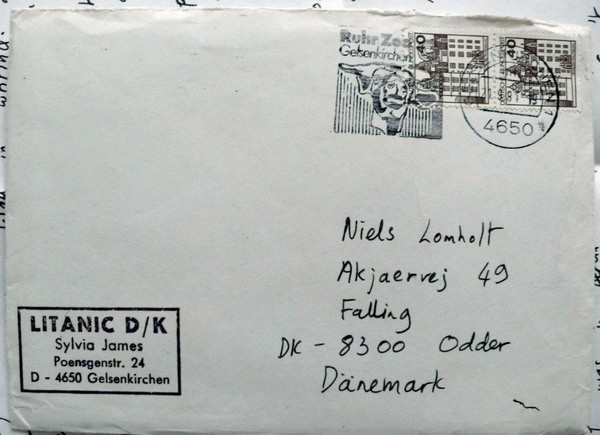 Ruhr Zoo
Gelsenkirchen
40
40
4650
Niels Lomholt
Akjaervej 49
Falling
DK - 8300 Odder
Dänemark
LITANIC D/K
Sylvia James
Poensgenstr. 24
D - 4650 Gelsenkirchen